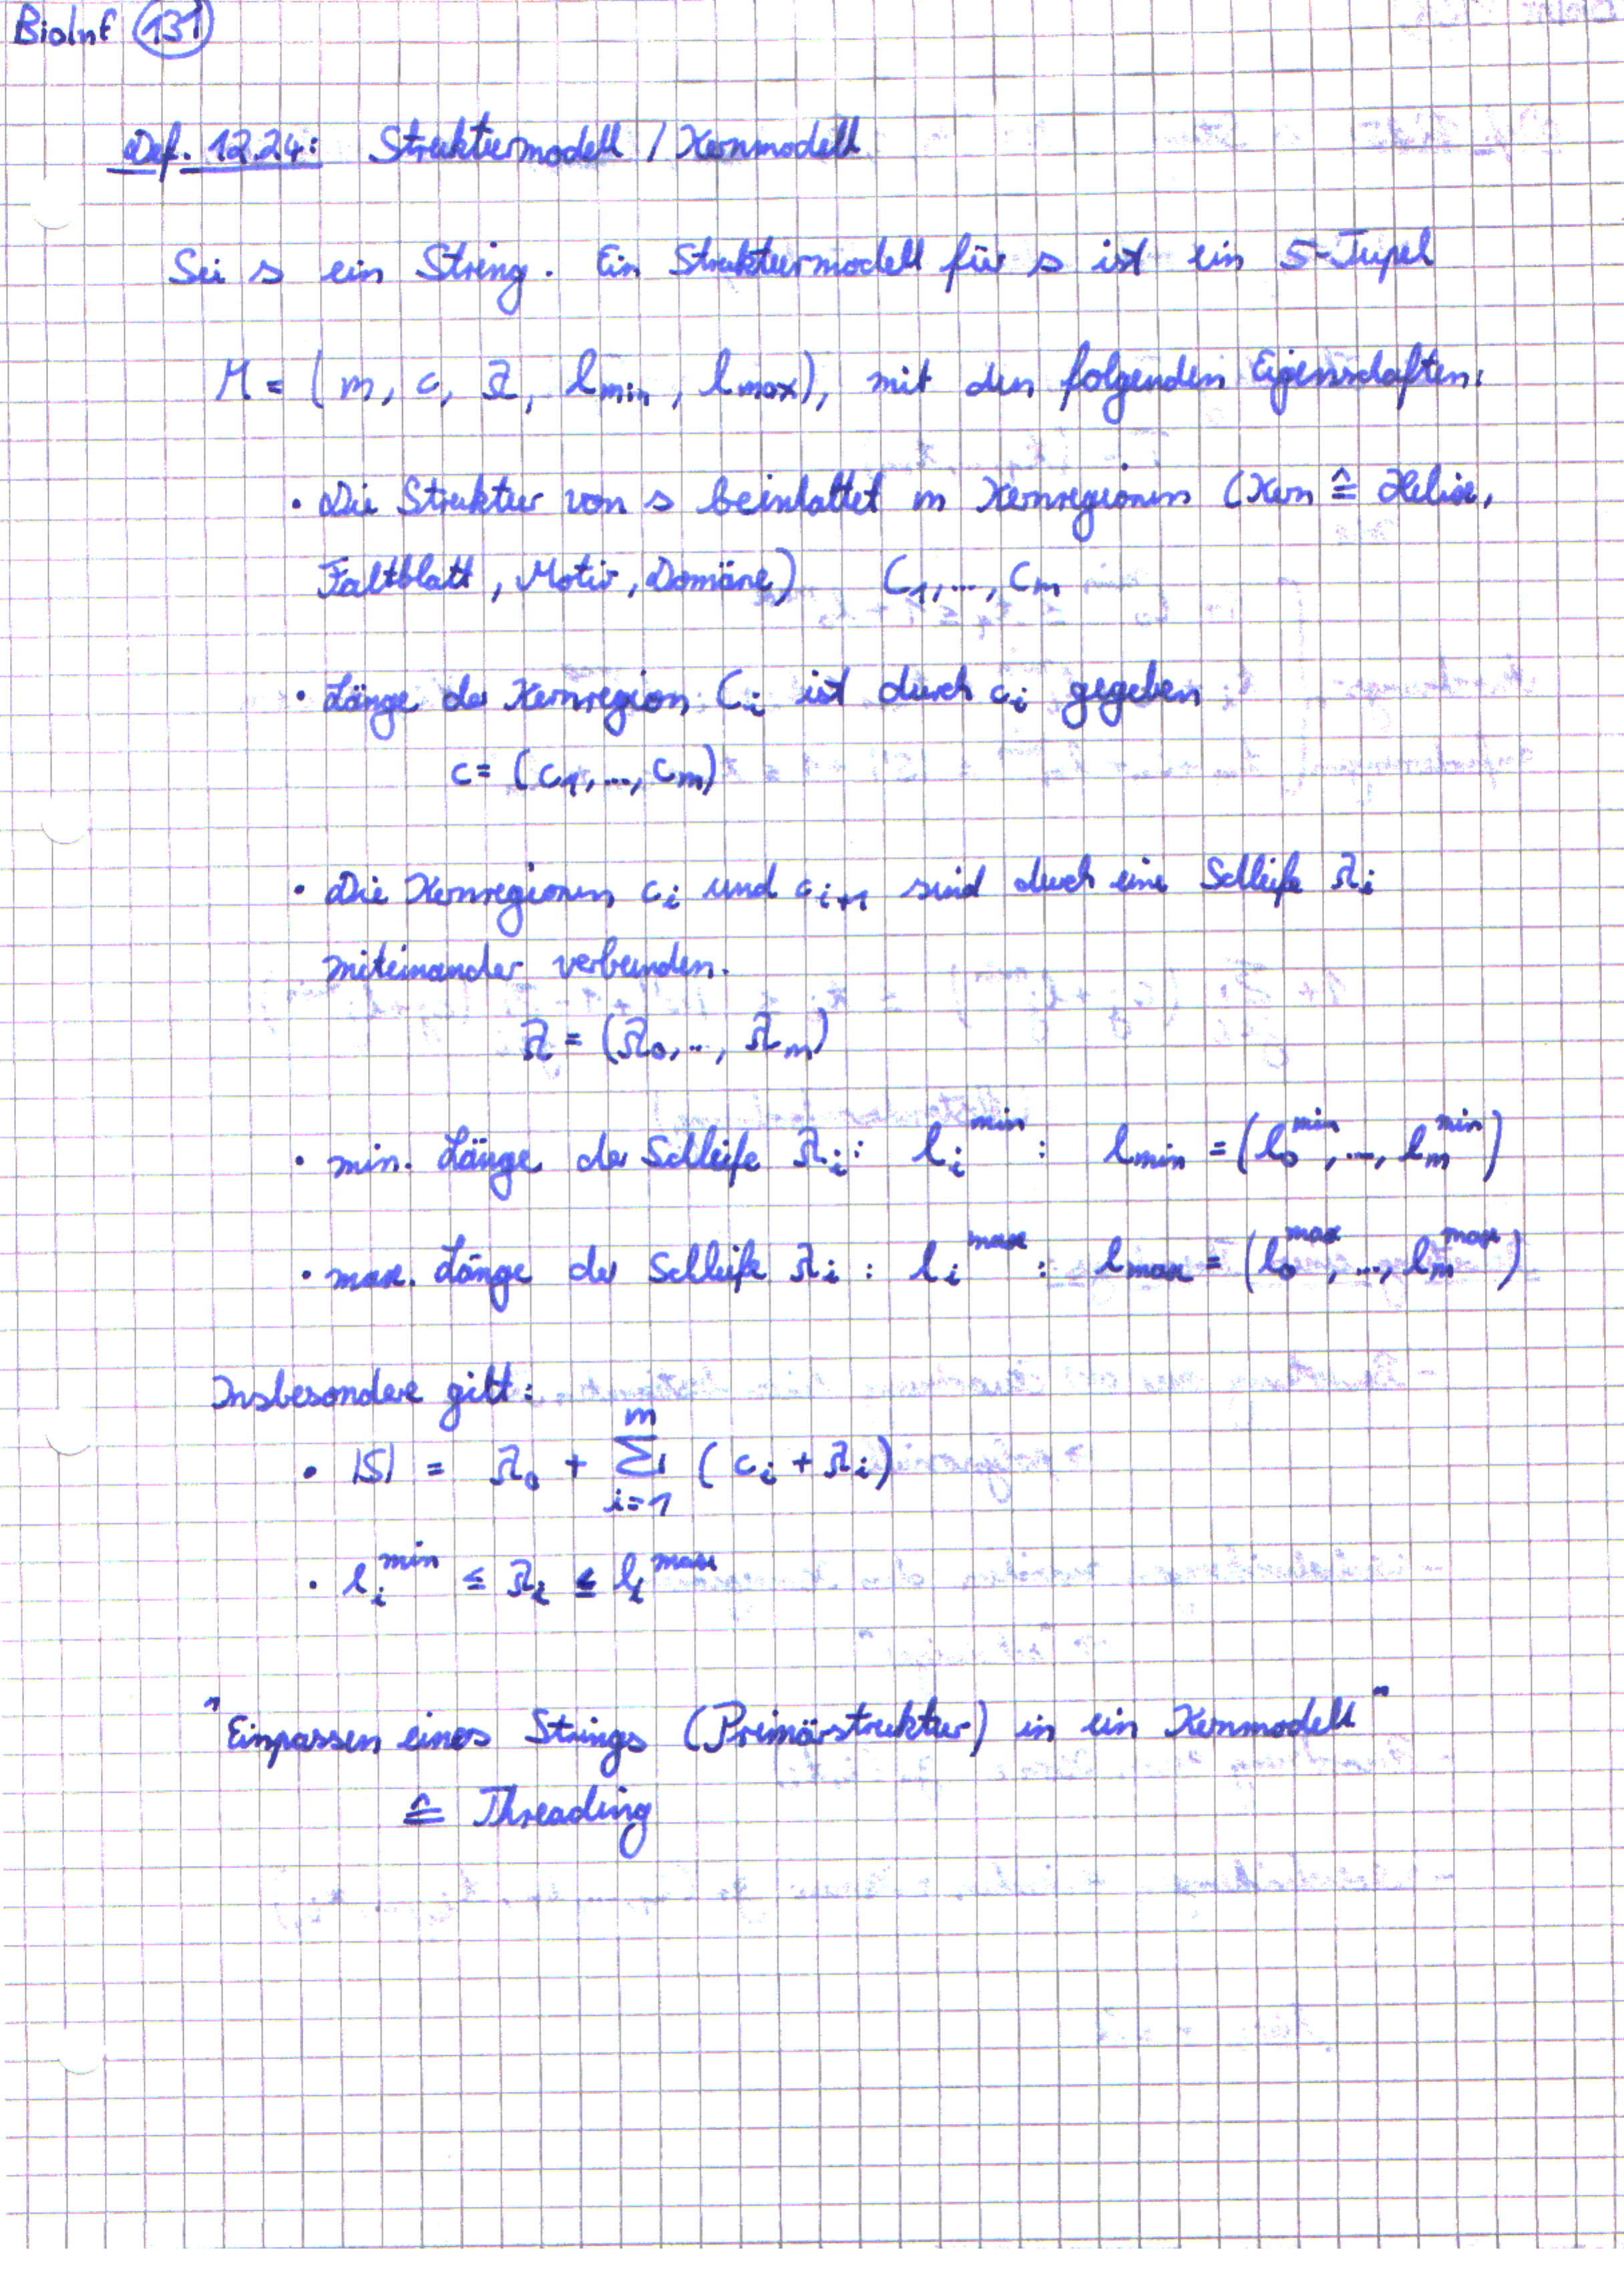 BioInf 131
Def. 12.24: Strukturmodell / Kernmodell
Sei s ein String. Ein Strukturmodell für s ist ein 5-Tupel
M = (m, c, λ, l_min, l_max), mit den folgenden Eigenschaften:
• Die Struktur von s beinhaltet m Kernregionen (Kern ≙ Helix,
Faltblatt, Motiv, Domäne) C_1, ..., C_m
• Länge der Kernregion C_i ist durch c_i gegeben
c = (c_1, ..., c_m)
• Die Kernregionen c_i und c_{i+1} sind durch eine Schleife λ_i
miteinander verbunden.
λ = (λ_0, .., λ_m)
• min. Länge der Schleife λ_i: l_i^min : l_min = (l_0^min, ..., l_m^min)
• max. Länge der Schleife λ_i : l_i^max : l_max = (l_0^max, ..., l_m^max)
Insbesondere gilt:
• |S| = λ_0 + Σ_{i=1}^m (c_i + λ_i)
• l_i^min ≤ λ_i ≤ l_i^max
"Einpassen eines Strings (Primärstruktur) in ein Kernmodell"
≙ Threading